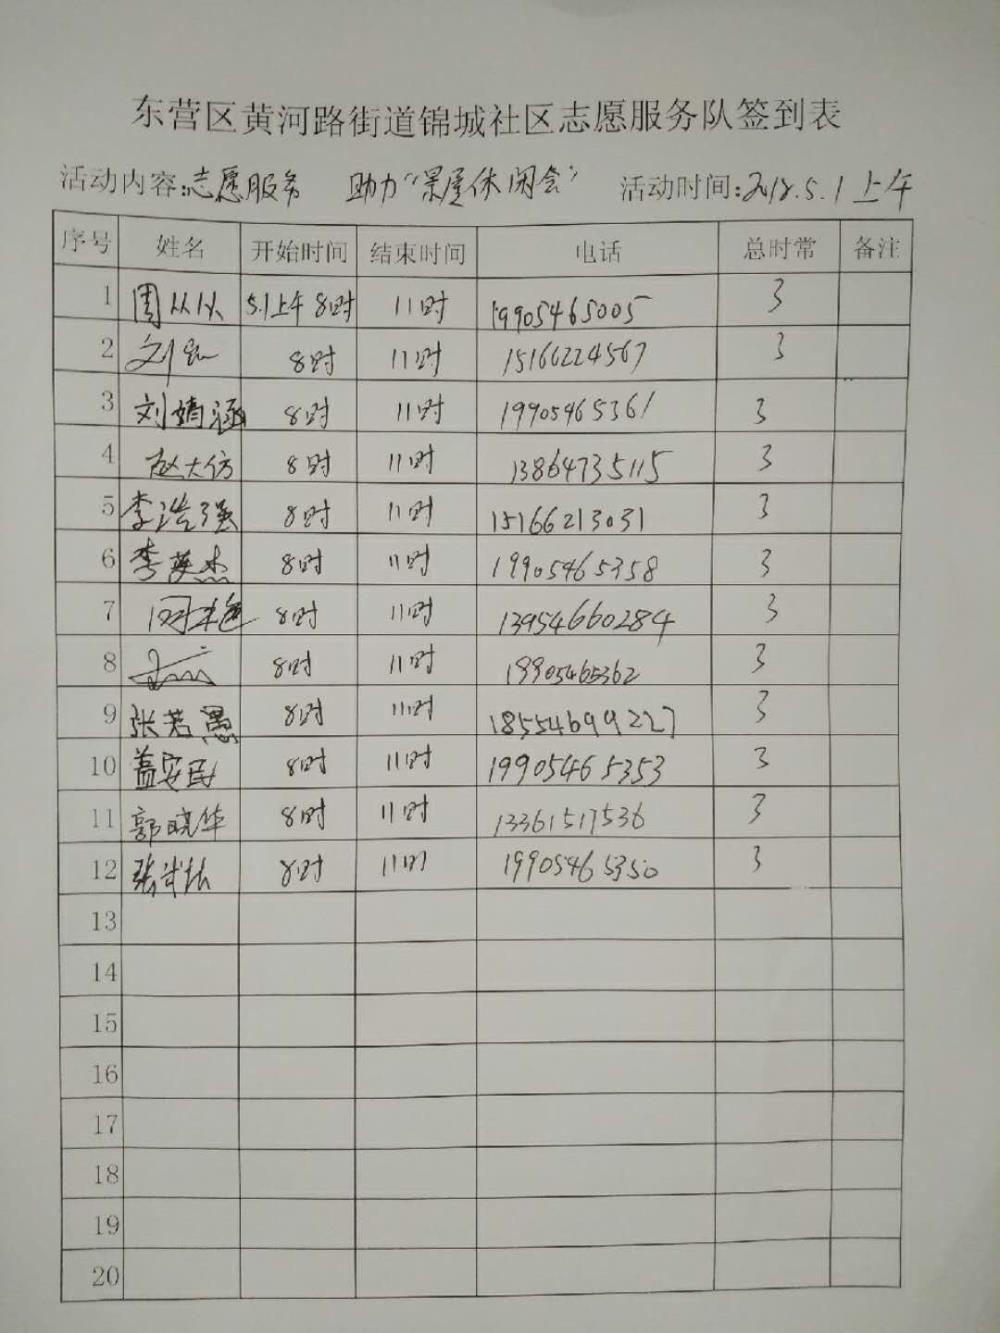 东营区黄河路街道锦城社区志愿服务队签到表
活动内容:志愿服务 助力"果屋休闲会" 活动时间:2018.5.1上午
序号 姓名 开始时间 结束时间 电话 总时常 备注
1 周 5.1上午8时 11时 19905465005 3
2 刘 8时 11时 15166224567 3
3 刘婧涵 8时 11时 19905465361 3
4 赵大仿 8时 11时 13864735115 3
5 李浩强 8时 11时 15166213031 3
6 李英杰 8时 11时 19905465358 3
7 8时 11时 13954660284 3
8 8时 11时 19905465362 3
9 张若愚 8时 11时 18554699227 3
10 盖安民 8时 11时 19905465353 3
11 郭晓华 8时 11时 13361517536 3
12 张 8时 11时 19905465350 3
13
14
15
16
17
18
19
20